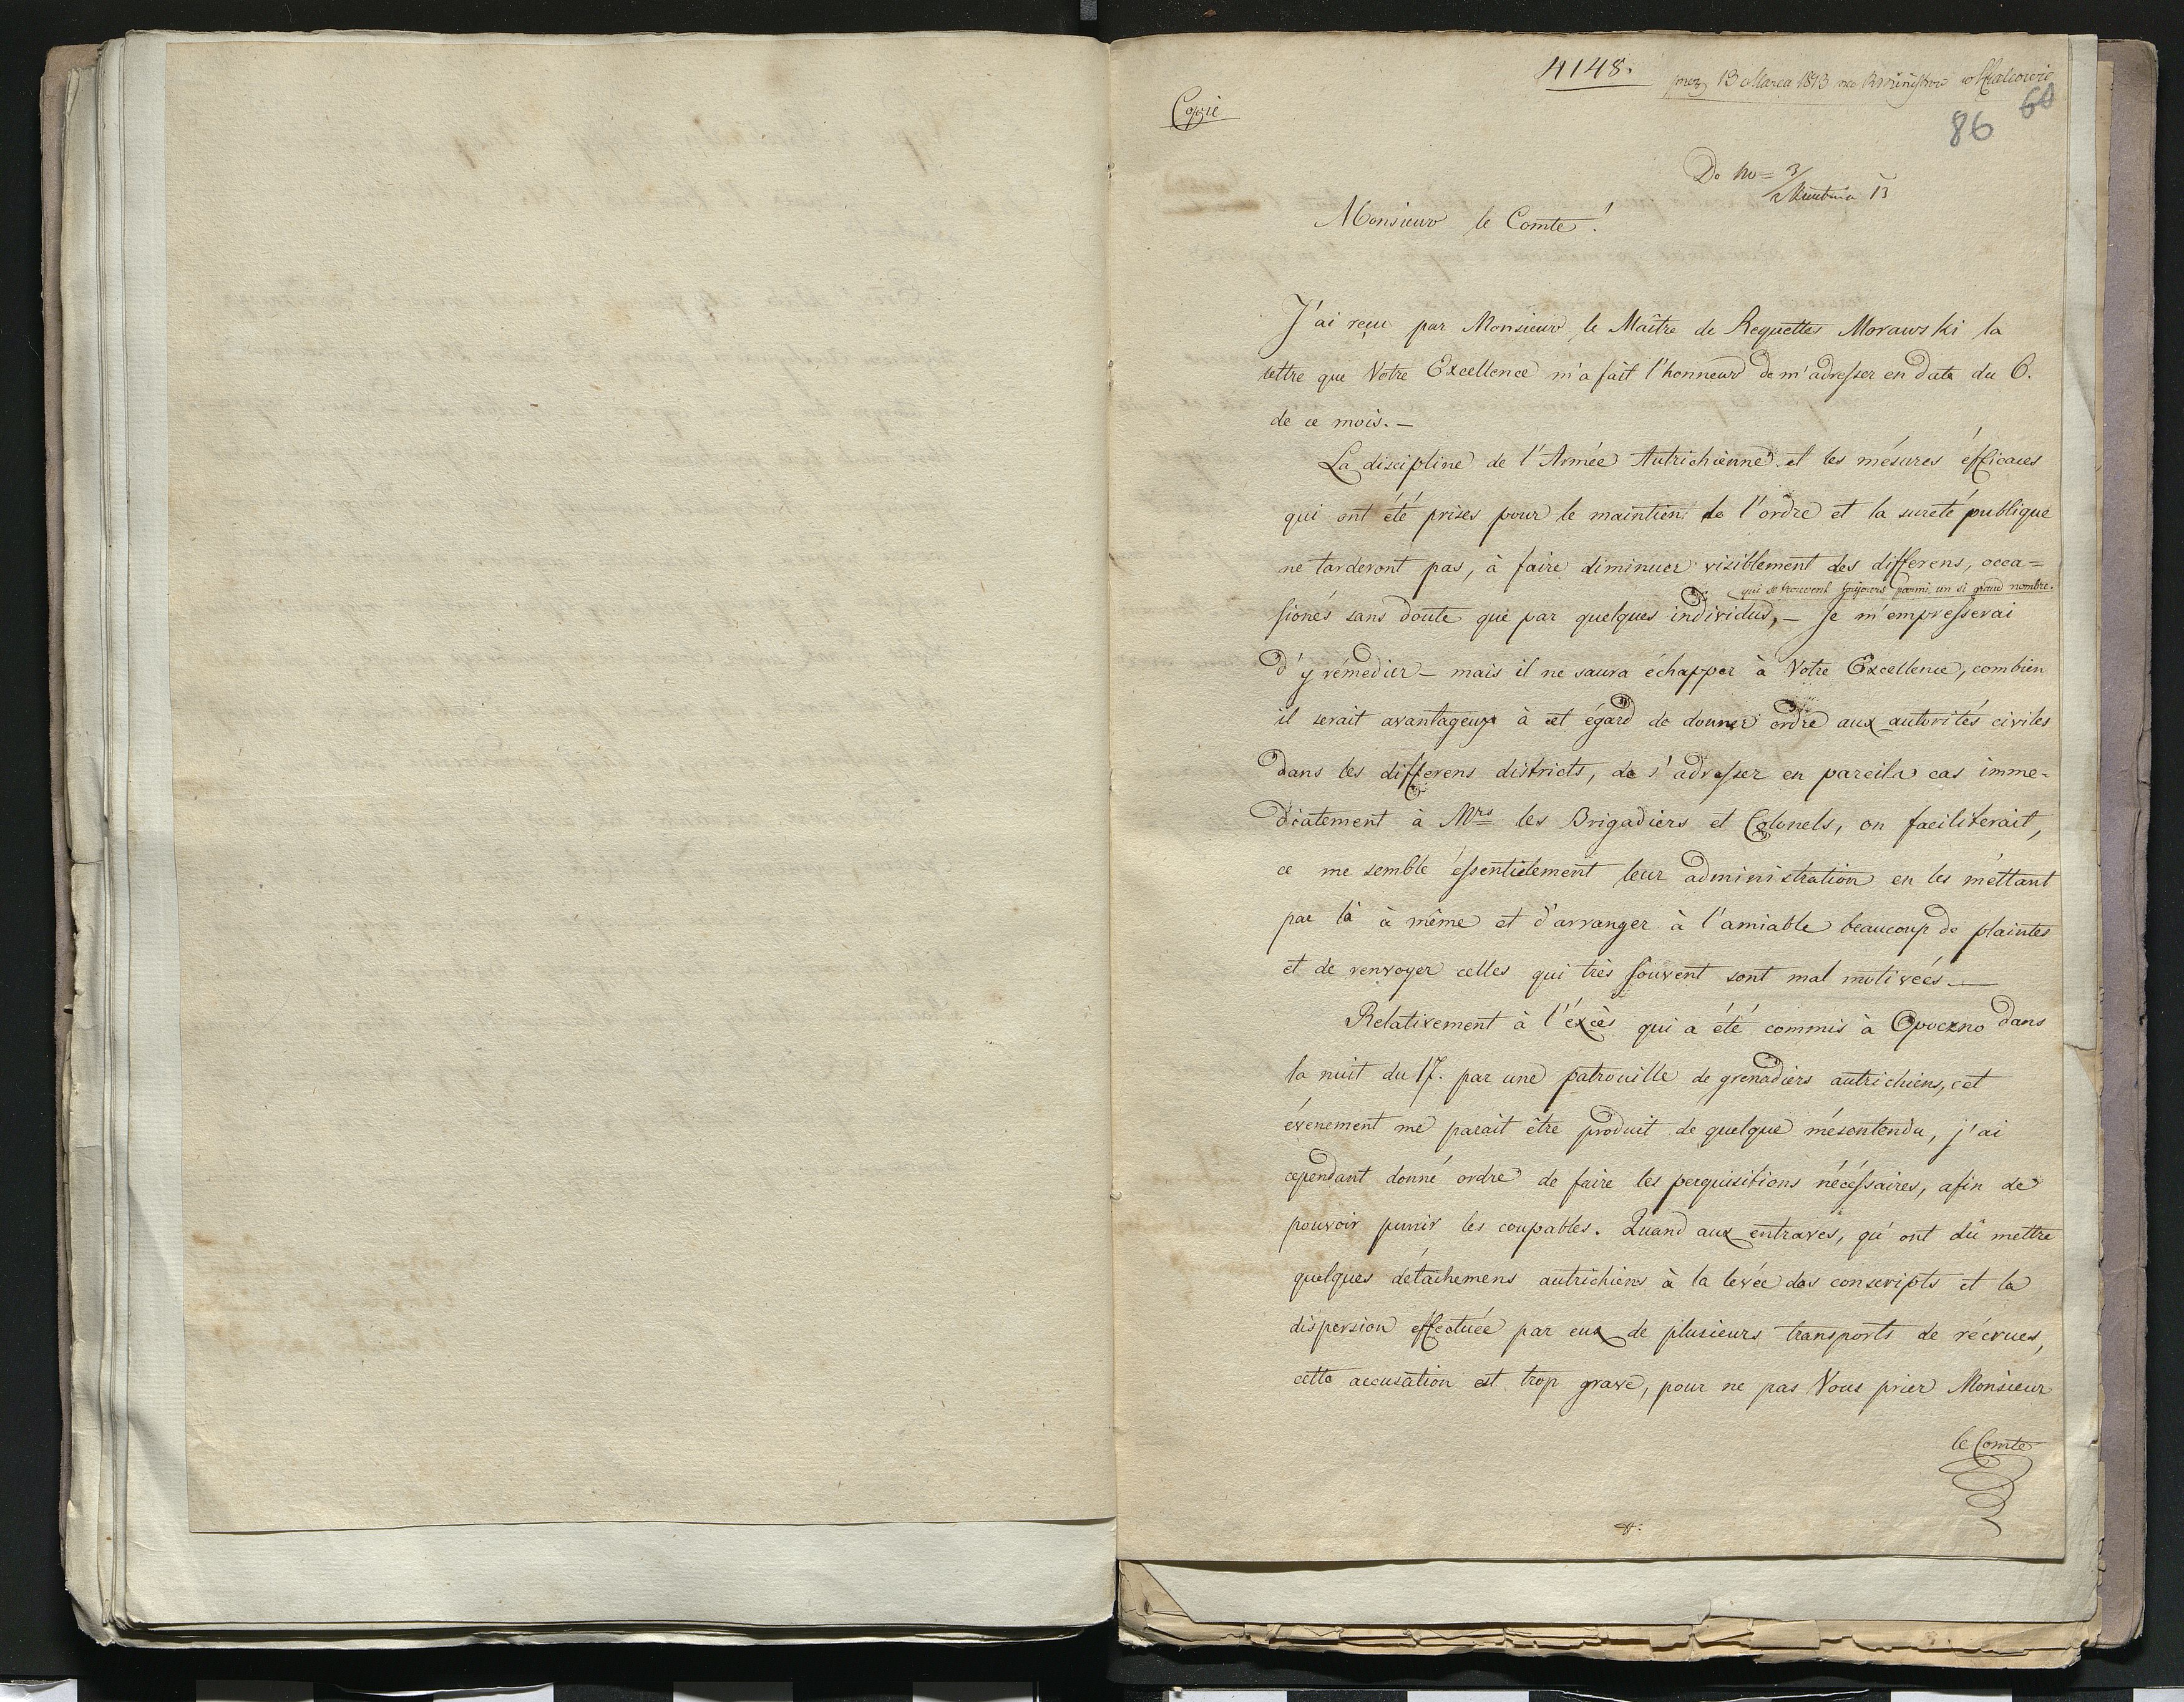 4148.
13 Marca 1813 na w Krakowie
86 60
Copie
Do No = 3/ Kwietnia 13
Monsieur le Comte!
J'ai reçu par Monsieur le Maître de Requettes Morawski la
lettre que Votre Excellence m'a fait l'honneur de m'adresser en date du 6.
de ce mois. —
La discipline de l'Armée Autrichienne et les mésures éfficaces
qui ont été prises pour le maintien de l'ordre et la sureté publique
ne tarderont pas, à faire diminuer visiblement des differens, occa=
qui se trouvent toujours parmi un si grand nombre.
sionés sans doute que par quelques individus, — Je m'empresserai
d'y rémedier — mais il ne saura échapper à Votre Excellence, combien
il serait avantageux à cet égard de donner ordre aux autorités civiles
dans les differens districts, de s'adresser en pareils cas imme=
diatement à Mrs les Brigadiers et Colonels, on faciliterait,
ce me semble éssentielement leur administration en les méttant
par là à même et d'arranger à l'amiable beaucoup de plaintes
et de renvoyer celles qui très souvent sont mal motivées. —
Relativement à l'éxcès qui a été commis à Opoczno dans
la nuit du 17. par une patrouille de grenadiers autrichiens, cet
évenement me parait être produit de quelque mésentendu, j'ai
cependant donné ordre de faire les perquisitions nécéssaires, afin de
pouvoir punir les coupables. Quand aux entraves, qu'ont dû mettre
quelques détachemens autrichiens à la levée des conscripts et la
dispersion effectuée par eux de plusieurs transports de récrues,
cette accusation est trop grave, pour ne pas Vous prier Monsieur
le Comte